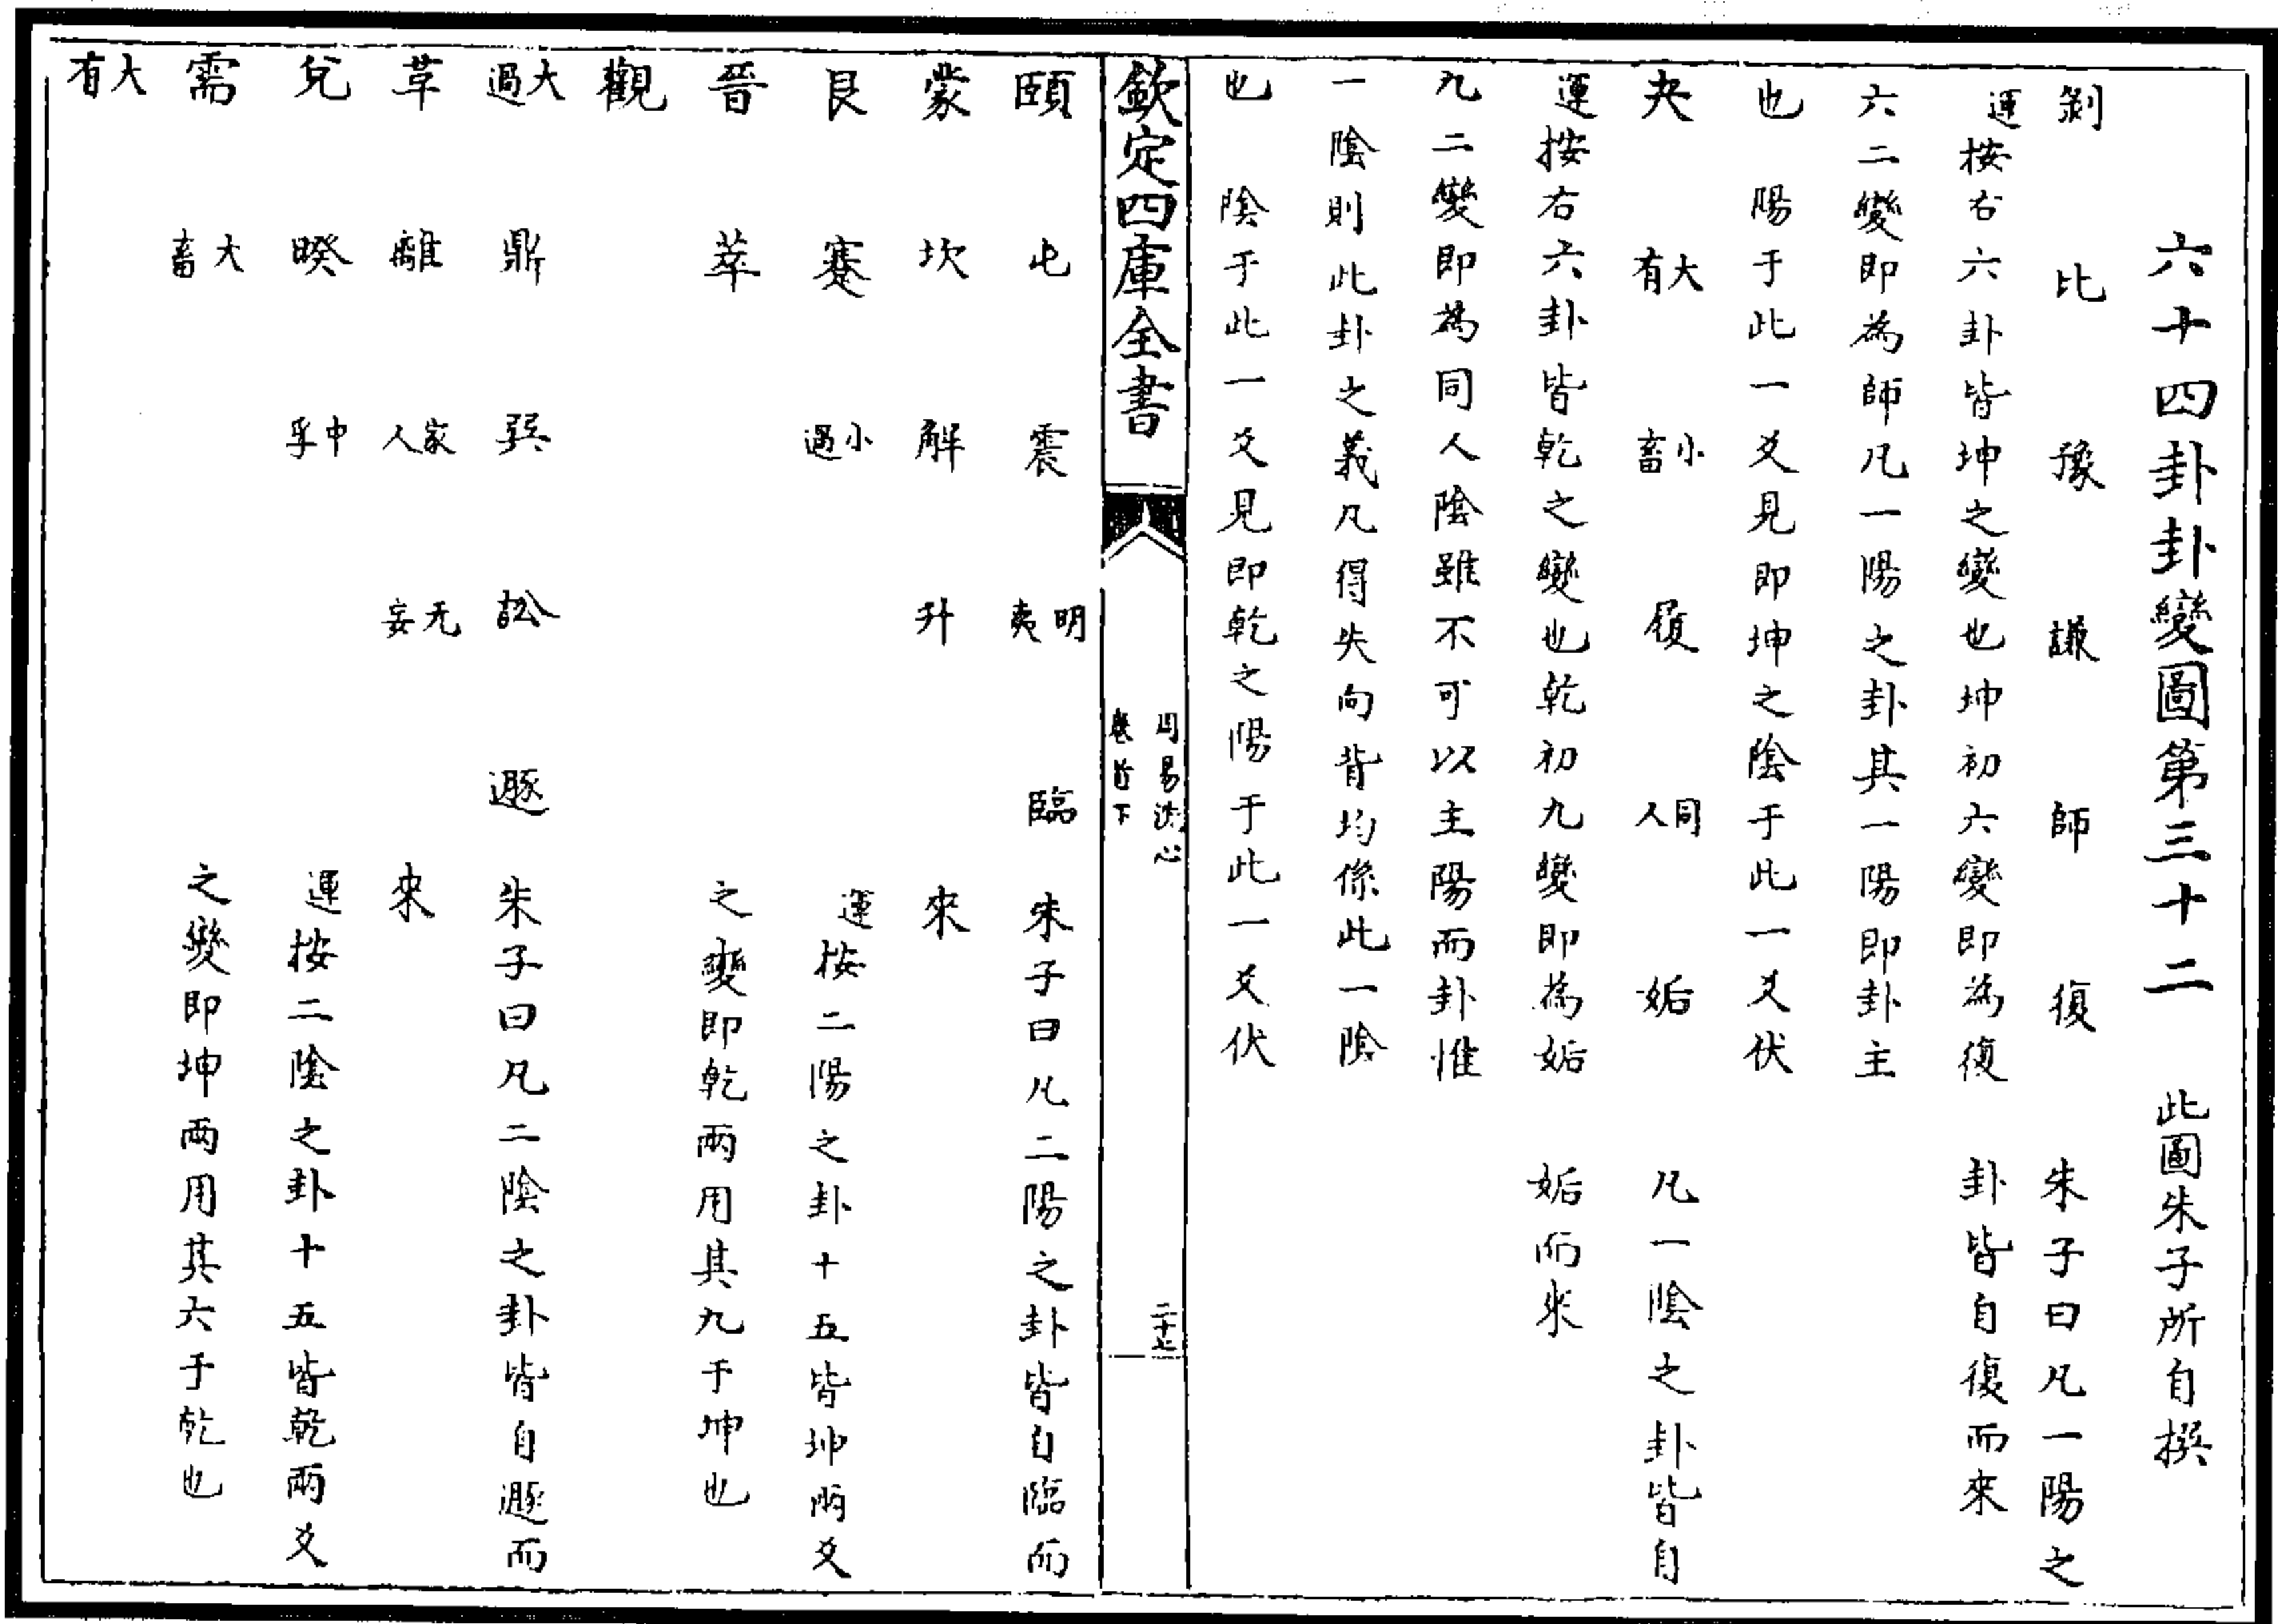 六十四卦卦變圖第三十二 此圖朱子所自撰
剝 比 豫 謙 師 復 朱子曰凡一陽之
卦皆自復而來
運按右六卦皆坤之變也坤初六變即為復
六二變即為師凡一陽之卦其一陽即卦主
也 陽于此一爻見即坤之陰于此一爻伏
夬 大有 小畜 履 同人 姤 凡一陰之卦皆自
姤而來
運按右六卦皆乾之變也乾初九變即為姤
九二變即為同人陰雖不可以主陽而卦惟
一陰則此卦之義凡得失向背均係此一陰
也 陰于此一爻見即乾之陽于此一爻伏
欽定四庫全書
周易洗心
卷首下
二十七
頤 屯 震 明夷 臨 朱子曰凡二陽之卦皆自臨而
蒙 坎 解 升 來
艮 蹇 小過 運按二陽之卦十五皆坤兩爻
晉 萃 之變即乾兩用其九于坤也
觀
大過 鼎 巽 訟 遯 朱子曰凡二陰之卦皆自遯而
革 離 家人 无妄 來
兌 睽 中孚 運按二陰之卦十五皆乾兩爻
需 大畜 之變即坤兩用其六于乾也
大有